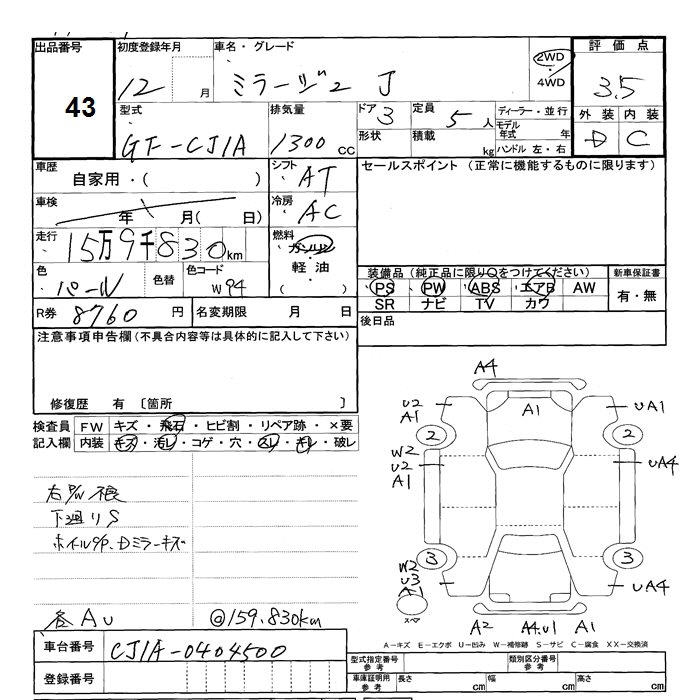 出品番号 初度登録年月 車名・グレード 評価点
43
12 月 ミラージュ J 2WD 4WD 3.5
型式 排気量 ドア 3 定員 5 人 ディーラー・並行 外装 内装
GF-CJ1A 1300 cc 形状 積載 kg モデル年式 年 D C
ハンドル 左・右
車歴 シフト セールスポイント (正常に機能するものに限ります)
自家用・( ) AT
車検 年 月( 日) 冷房 AC
走行 15万9千830km 燃料 ガソリン
軽油
( )
色 パール 色替 色コード W94
装備品(純正品に限り○をつけてください) 新車保証書
PS PW ABS エアB AW 有・無
SR ナビ TV カワ
R券 8760 円 名変期限 月 日 後日品
注意事項申告欄(不具合内容等は具体的に記入して下さい)
修復歴 有 〔箇所 〕
検査員 FW キズ・飛石・ヒビ割・リペア跡・×要
記入欄 内装 キズ・汚レ・コゲ・穴・スレ・キレ・破レ
右P/W不良
下廻りS
ホイルキズ.Dミラーキズ
各AU @159.830km
A4
U2 A1 A1 UA1
2 2
W2 U2 A1 UA4
3 3
W2 U3 A1 UA4
スペア
A2 A4.U1 A1
A-キズ E-エクボ U-凹み W-補修跡 S-サビ C-腐食 XX-交換済
車台番号 CJ1A-0404500
型式指定番号 参考 類別区分番号 参考
登録番号 車庫証明用 参考 長さ cm 幅 cm 高さ cm